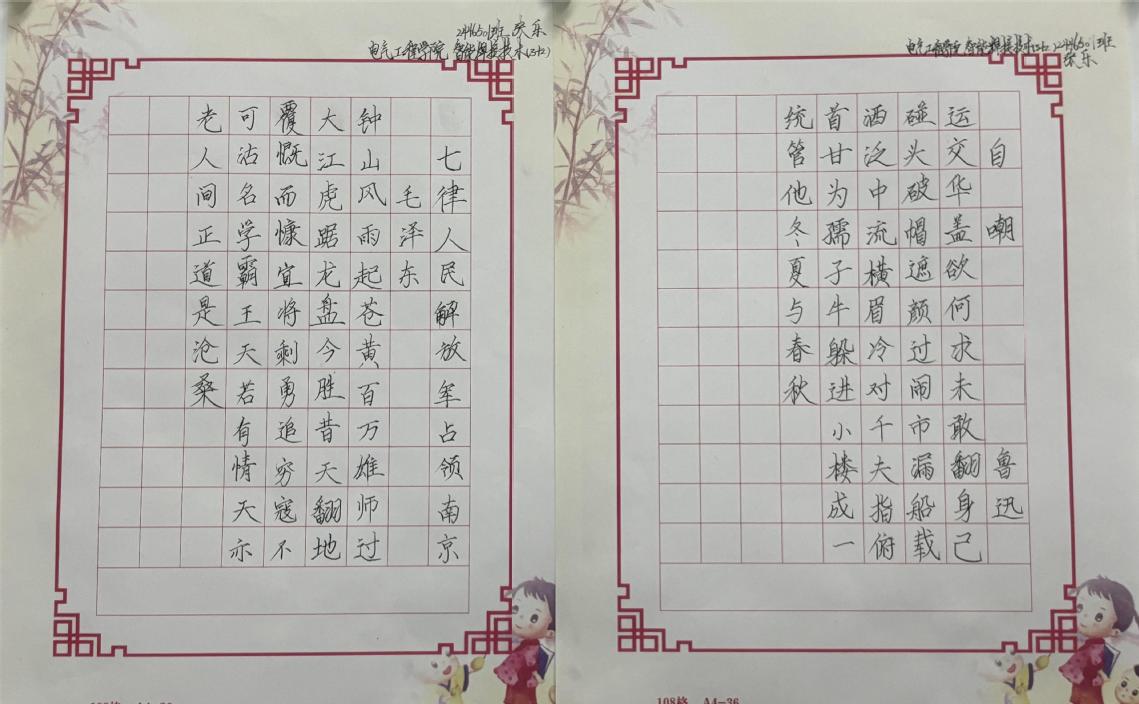 电气工程学院 智能焊接技术
七律人民解放军占领南京
毛泽东
钟山风雨起苍黄百万雄师过
大江虎踞龙盘今胜昔天翻地
覆慨而慷宜将剩勇追穷寇不
可沽名学霸王天若有情天亦
老人间正道是沧桑
电气工程学院 智能焊接技术
自嘲 鲁迅
运交华盖欲何求未敢翻身己
碰头破帽遮颜过闹市漏船载
洒泛中流横眉冷对千夫指俯
首甘为孺子牛躲进小楼成一
统管他冬夏与春秋
108格 A4-36